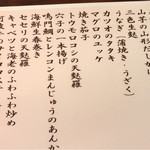 山芋の山形だしがけ
三色生麩
うなぎ(蒲焼き・うざく)
カツオのタタキ
マグロのユッケ
焼き茄子
トウモロコシの天麩羅
穴子の一本揚げ
鳴門鯛とレンコンまんじゅうのあんか
海鮮生春巻き
セセリの天麩羅
キャベツと海老のふわふわ炒め